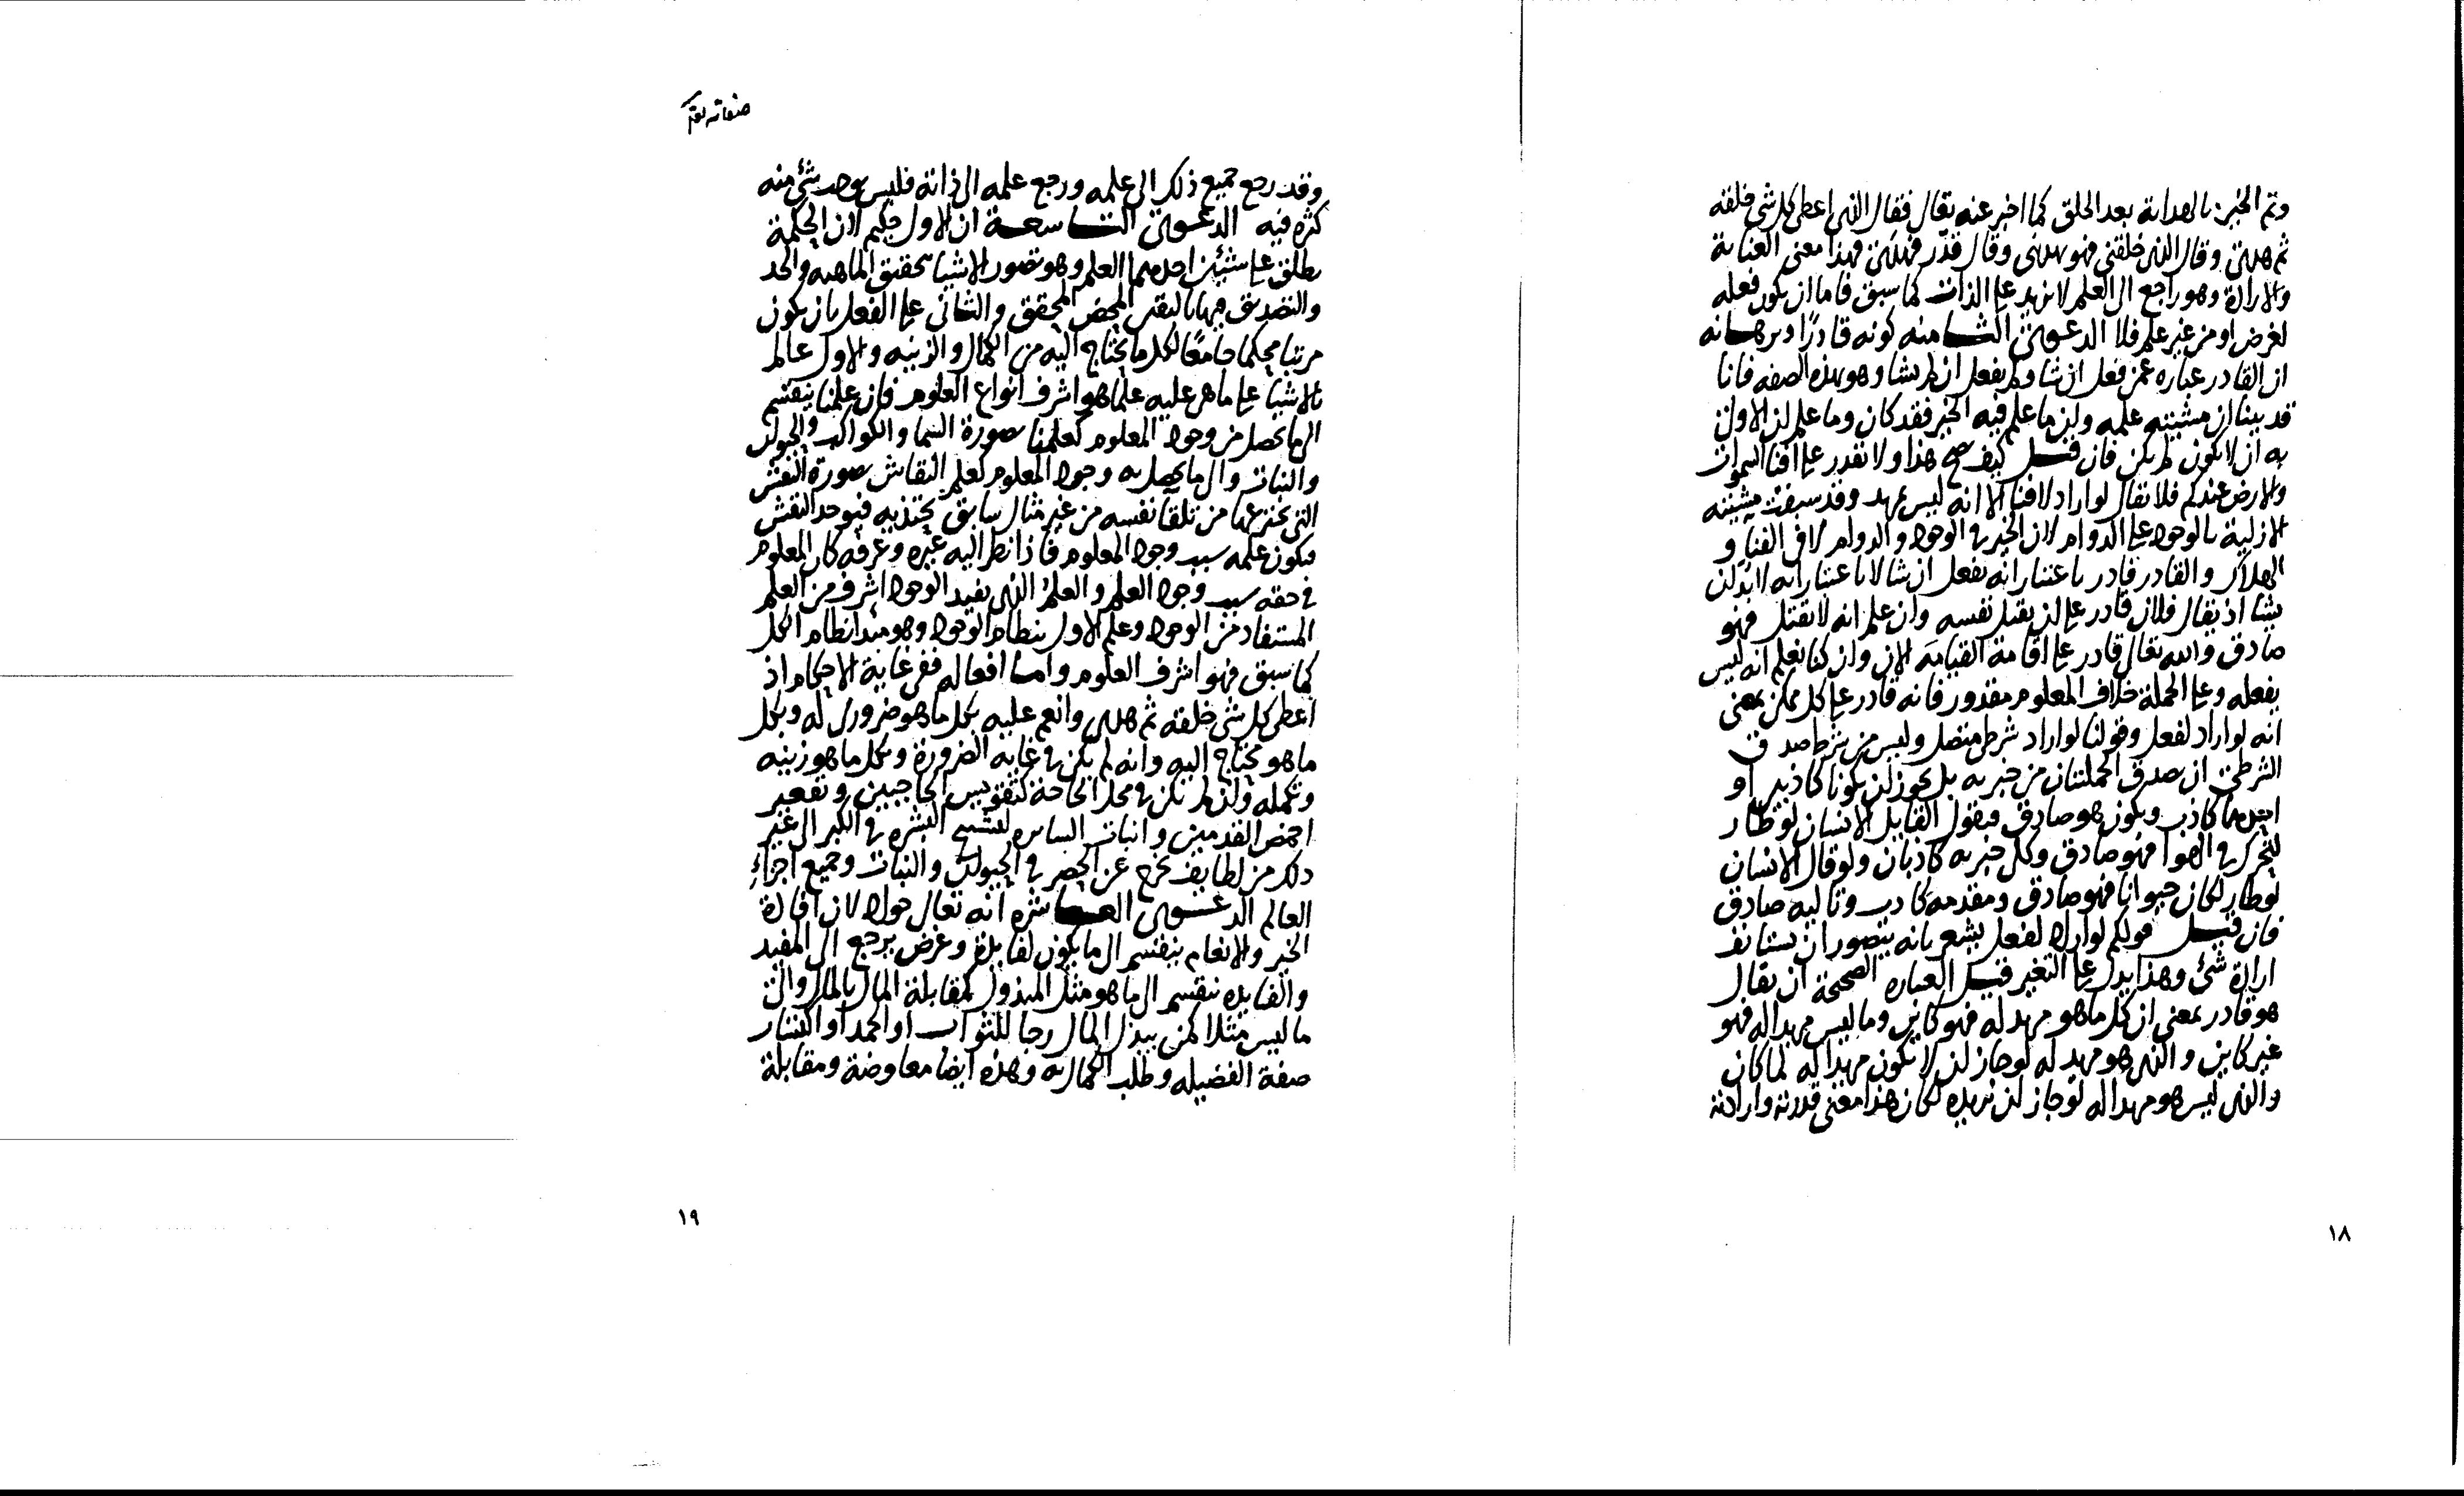 وتم الخير بالهداية بعد الخلق كما اخبر عنه تعالى فقال الذي اعطى كل شي خلقه
ثم هدى وقال الذي خلقني فهو يهدين وقال قدر فهدى فهذا معنى العناية
والارادة وهو راجع الى العلم لا يزيد على الذات كما سبق فاما ان يكون فعله
لغرض او من غير علم فلا الدعوى الثامنه كونه قادرًا وبرهانه
ان القادر عباره عمن فعل ان شا ولم يفعل ان لم يشا وهو بهذه الصفه فانا
قد بينا ان مشيئته علمه وان ما علم فيه الخير فقد كان وما علم ان الاولى
به ان لا يكون لم يكن فان قيل كيف صح هذا ولا نقدر على افنا السموات
والارض عندكم فلا نقال لو اراد لافنا الا انه ليس يريد وقد سبقت مشيئته
الازلية بالوجود على الدوام لان الخير في الوجود والدوام لا في الفنا و
الهلاك والقادر قادر باعتبار انه يفعل ان شا لا باعتبار انه لا بد ان
يشا اذ يقال فلان قادر على ان يقتل نفسه وان علم انه لا يقتل فهو
صادق والله تعالى قادر على اقامة القيامه الان وان كنا نعلم انه ليس
يفعله وعلى الجملة خلاف المعلوم مقدور فانه قادر على كل ممكن بمعنى
انه لو اراد لفعل وقولنا لو اراد شرطى متصل وليس من شرط صدق
الشرطى ان صدق الجملتان من جزيه بل يجوز ان يكونا كاذبين او
احدهما كاذب ويكون هو صادق فيقول القايل الانسان لو طار
لتحرك في الهوا فهو صادق وكل جزيه كاذبان ولو قال الانسان
لو طار لكان حيوانا فهو صادق ومقدمه كاذب وتاليه صادق
فان قيل قولكم لو اراد لفعل يشعر بانه يتصور ان يستانف
ارادة شئ وهذا يدل على التغير قيل العباره الصحيحة ان يقال
هو قادر بمعنى ان كل ما هو مريد له فهو كاين وما ليس مريدا له فهو
غير كاين والذي هو مريد له لو جاز ان لا يكون مريدا له لما كان
والذي ليس هو مريدا له لو جاز ان يريده لكان فهذا معنى قدرته وارادته
١٨
صفاته تقد
وقد رجع جميع ذلك الى علمه ورجع علمه الى ذاته فليس يوجد شئ منه
كثره فيه الدعوى التاسعة ان الاول حكيم لان الحكمة
يطلق على شيئين احدهما العلم وهو تصور الاشيا بتحقيق الماهيه والحد
والتصديق فيها باليقين المحض المحقق والثانى على الفعل بان يكون
مرتبا محكما جامعًا لكل ما يحتاج اليه من الكمال والزينه والاول عالم
بالاشيا على ما هى عليه علما هو اشرف انواع العلوم فان علمنا ينقسم
الى ما يحصل من وجود المعلوم كعلمنا بصورة السما والكواكب والحيوان
والنبات والى ما يحصل به وجود المعلوم كعلم النقاش بصورة النقش
التى يخترعها من تلقا نفسه من غير مثال سابق يحتذيه فيوجد النقش
فيكون علمه سبب وجود المعلوم فاذا نظر اليه غيره وعرفه كان المعلوم
في حقه سبب وجود العلم والعلم الذي يفيد الوجود اشرف من العلم
المستفاد من الوجود وعلم الاول بنظام الوجود وهو مبدا نظام الكل
كما سبق فهو اشرف العلوم واما افعاله ففى غاية الاحكام اذ
اعطى كل شئ خلقه ثم هدى وانعم عليه بكل ما هو ضرورى له وبكل
ما هو محتاج اليه وانه لم يكن في غايه الضرورة وبكل ما هو زينه
وتكمله وان لم يكن في محل الحاجة كتقويس الحاجبين وتقعير
اخمص القدمين وانبات الساتره لتشنج البشره في الكبر الى غير
ذلك من لطايف تخرج عن الحصر في الحيوان والنبات وجميع اجزاء
العالم الدعوى العاشره انه تعالى جواد لان افادة
الخير والانعام ينقسم الى ما يكون لفايدة وغرض يرجع الى المفيد
والفايده ينقسم الى ما هو مثل المبذول كمقابلة المال بالمال والى
ما ليس مثلا كمن يبذل المال رجا للثواب او الحمد او اكتساب
صفة الفضيله وطلب الكمال به وهذه ايضا معاوضة ومقابلة
١٩